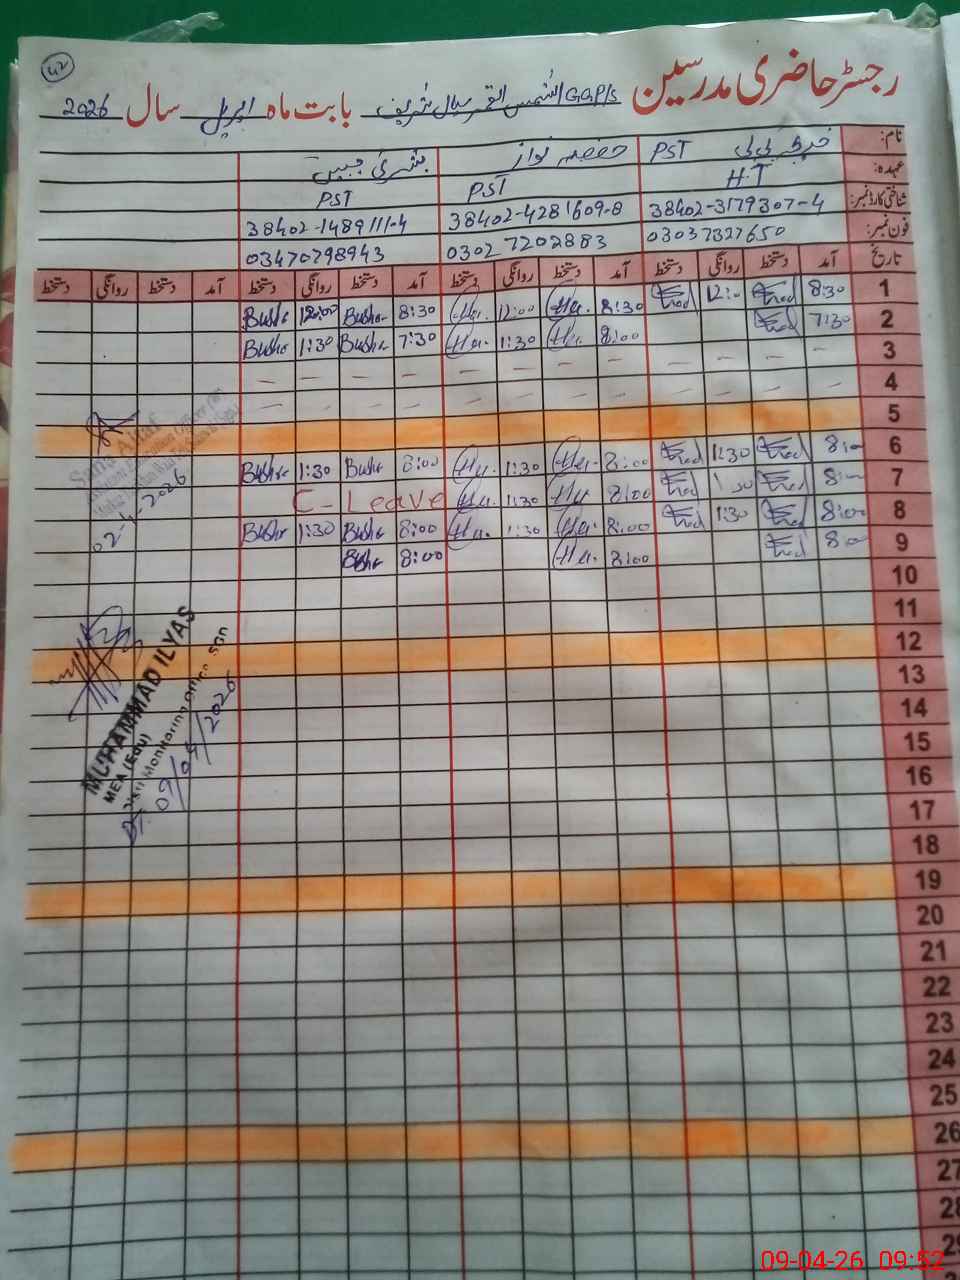 42
رجسٹر حاضری مدرسین GGP/S الشمس القمر سیال شریف بابت ماہ اپریل سال 2026
نام: خدیجہ بی بی PST حفصہ نواز بشریٰ جبین
عہدہ: H.T PST PST
شناختی کارڈ نمبر: 38402-3179307-4 38402-4281609-8 38402-1489111-4
فون نمبر: 03037327650 0302 7202883 03470798943
تاریخ آمد دستخط روانگی دستخط آمد دستخط روانگی دستخط آمد دستخط روانگی دستخط آمد دستخط روانگی دستخط
1 8:30 12:0 8:30 12:00 8:30 Bushr 12:00 Bushr
2 7:30 8:00 1:30 7:30 Bushr 1:30 Bushr
3 – – – – – – – – – – –
4 – – – – – – – – – – –
5
6 8:00 1:30 8:00 1:30 8:00 Bushr 1:30 Bushr
7 8:00 1:30 8:00 1:30 C-Leave
8 8:00 1:30 8:00 1:30 8:00 Bushr 1:30 Bushr
9 8:00 8:00 8:00 Bushr
10
11
12
13
14
15
16
17
18
19
20
21
22
23
24
25
26
27
28
29
Sana Altaf
02-4-2026
MUHAMMAD ILYAS
MEA (Edu)
Distt Monitoring Office, SGD
09/04/2026
09-04-26 09:52